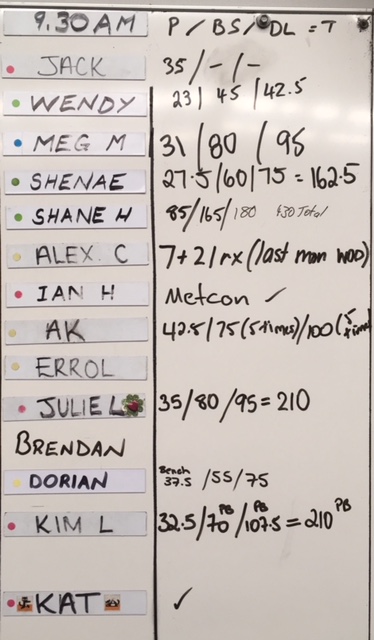 9.30AM P/BS/DL=T
JACK 35/-/-
WENDY 23/45/42.5
MEG M 31/80/95
SHENAE 27.5/60/75 = 162.5
SHANE H 85/165/180 430 Total
ALEX. C 7+21rx (last man WOD)
IAN H Metcon ✓
AK 42.5/75 (5 times)/100 (5 times
ERROL
JULIE L 35/80/95 = 210
BRENDAN
DORIAN Bench 37.5 /55/75
KIM L 32.5/70 PB/107.5 PB = 210 PB
KAT ✓